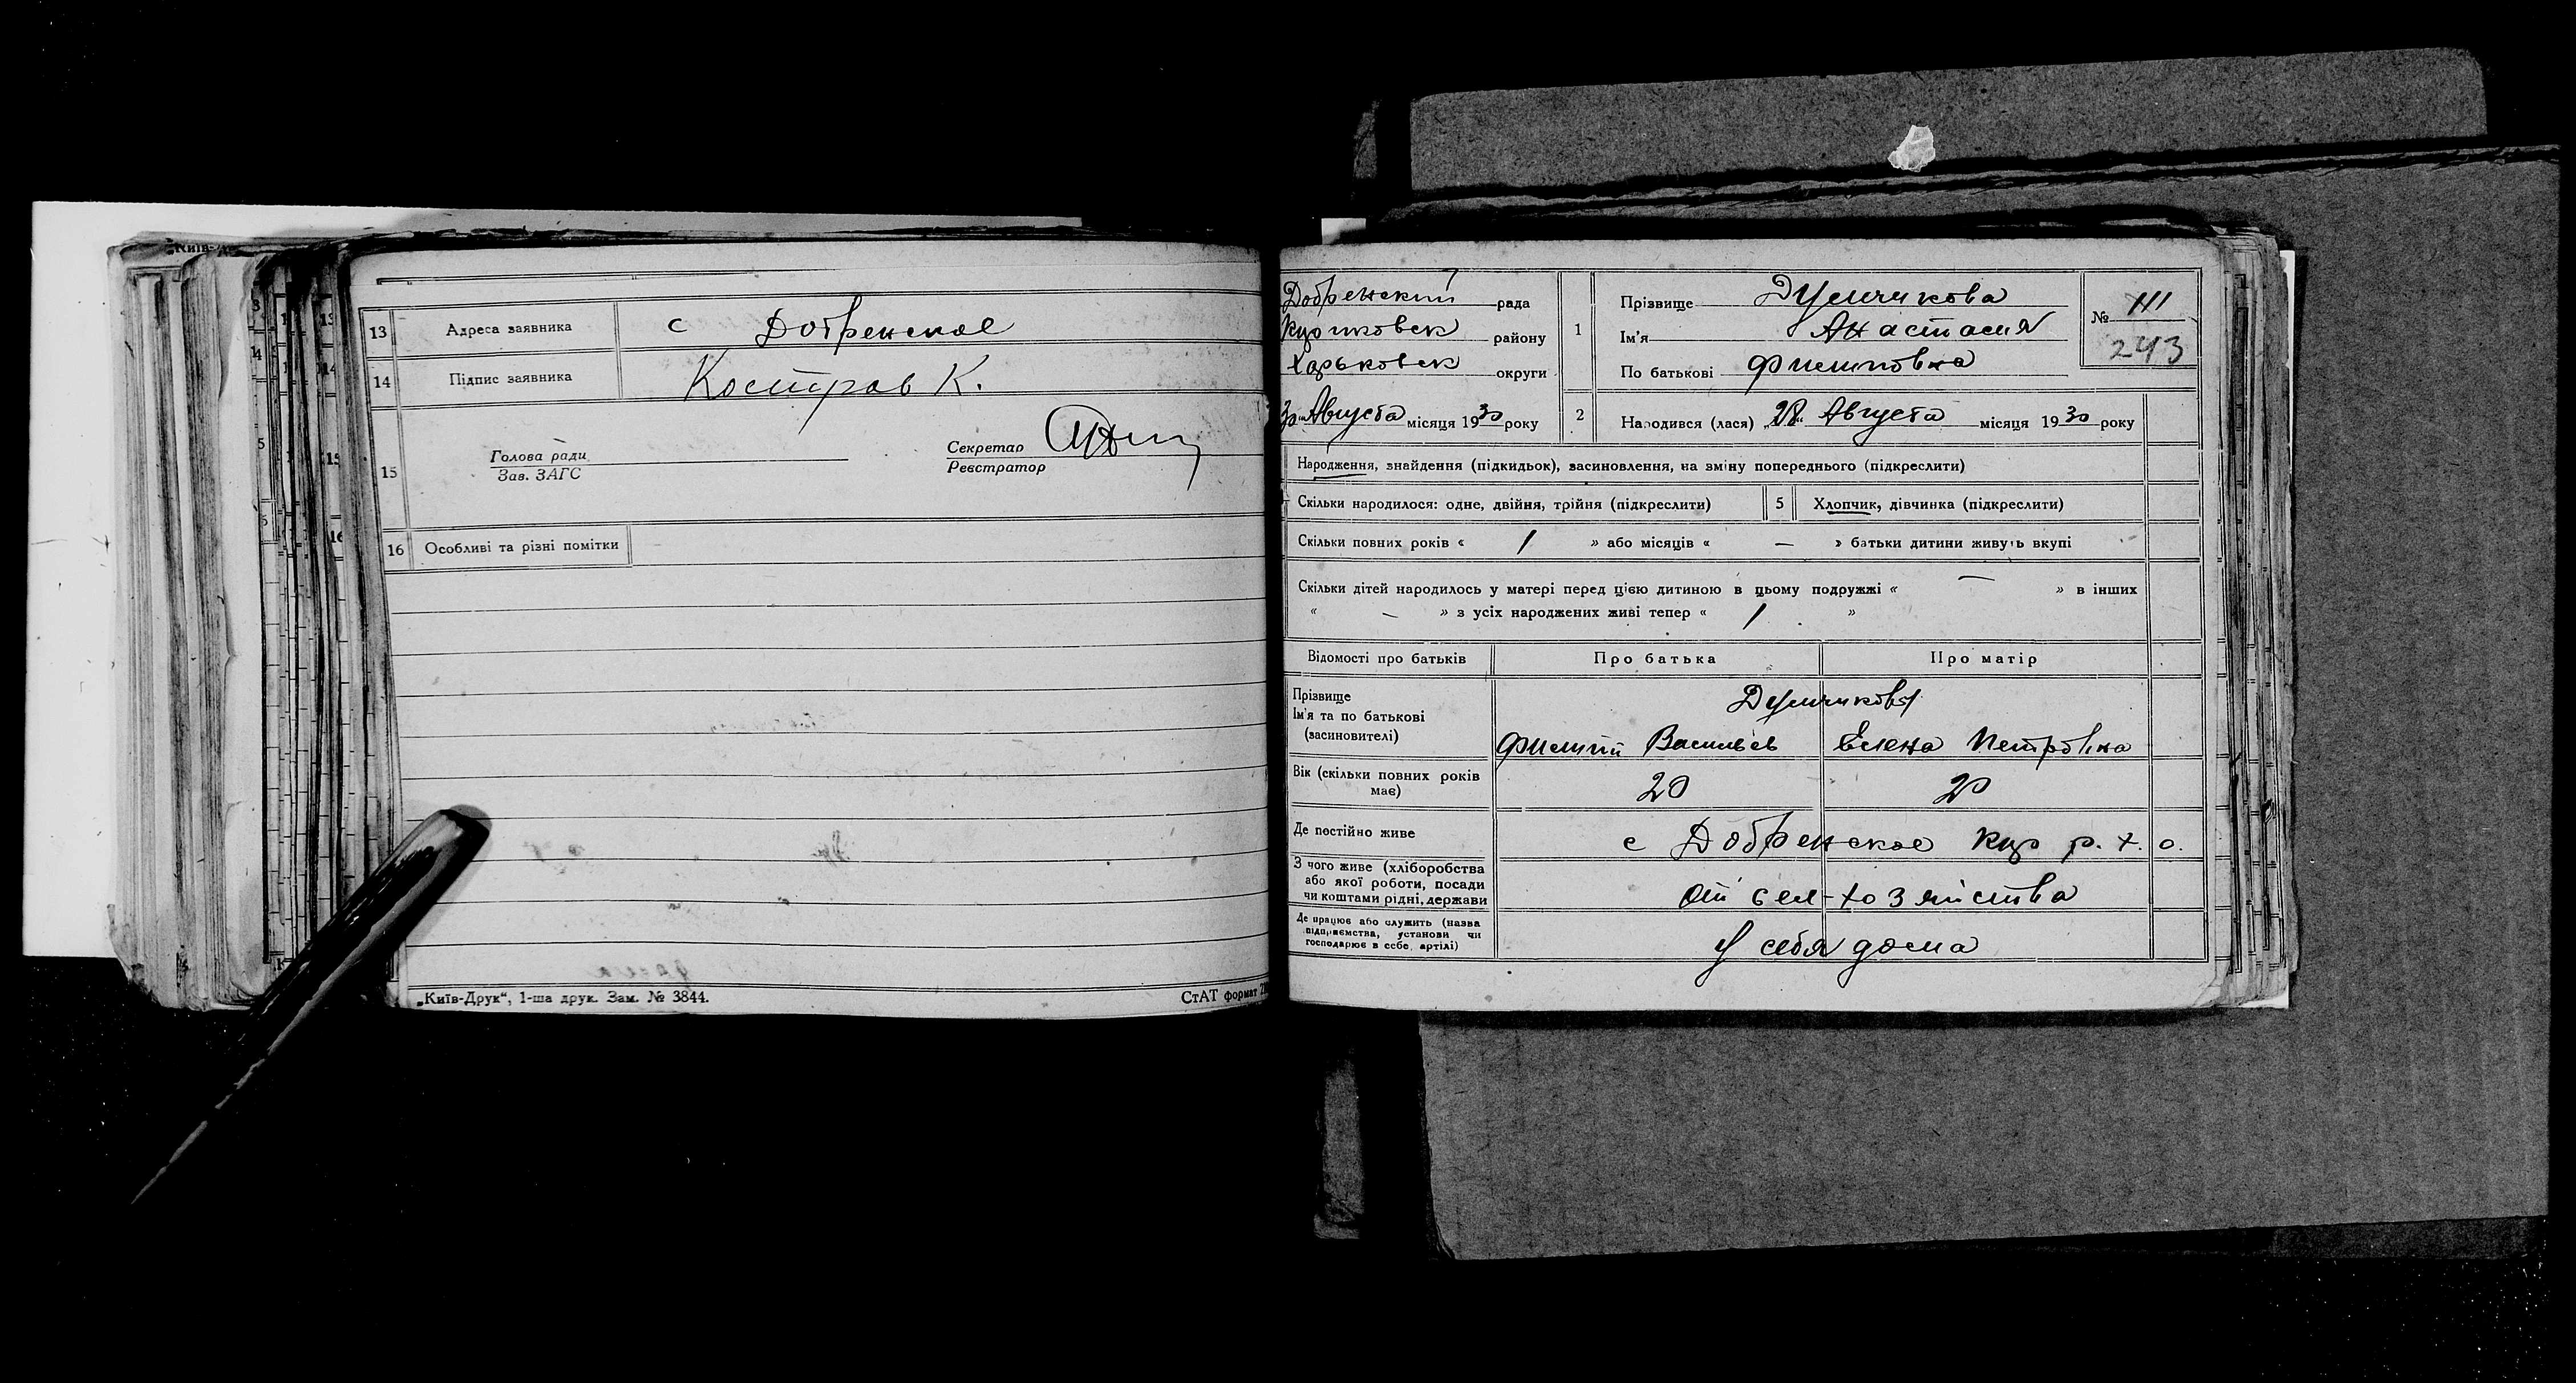 13 Адреса заявника с Добренское
14 Підпис заявника Костров К.
15 Голова ради Секретар
Зав. ЗАГС Реєстратор
16 Особливі та різні помітки
„Київ-Друк“, 1-ша друк. Зам. № 3844. СтАТ формат
Добренский рада
району
Харьковск округи
30 Августа місяця 1930 року
1 Прізвище
Ім'я Анастасия
По батькові Филиповна
№ 111
243
2 Народився (лася) „28“ Августа місяця 1930 року
Народження, знайдення (підкидьок), засиновлення, на зміну попереднього (підкреслити)
Скільки народилося: одне, двійня, трійня (підкреслити) 5 Хлопчик, дівчинка (підкреслити)
Скільки повних років « 1 » або місяців « — » батьки дитини живуть вкупі
Скільки дітей народилось у матері перед цією дитиною в цьому подружжі « — » в інших
« — » з усіх народжених живі тепер « 1 »
Відомості про батьків Про батька Про матір
Прізвище
Ім'я та по батькові
(засиновителі) Филипп Васильев Елена Петровна
Вік (скільки повних років має) 20 20
Де постійно живе с Добренское Кур р. х. о.
З чого живе (хліборобства
або якої роботи, посади
чи коштами рідні, держави от сел-хозяйства
Де працює або служить (назва
підприємства, установи чи
господарює в себе, артілі) У себя дома